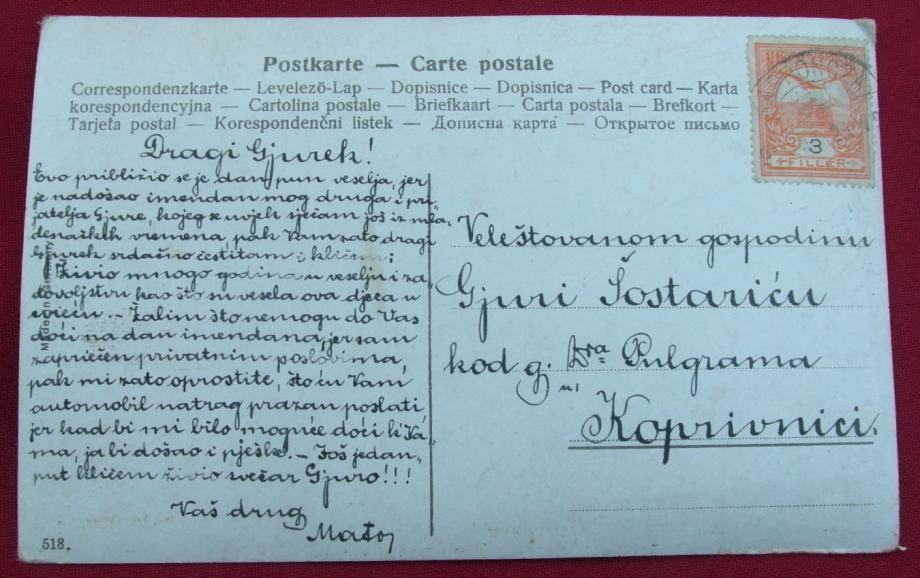 Postkarte — Carte postale
Correspondenzkarte — Levelező-Lap — Dopisnice — Dopisnica — Post card — Karta
korespondencyjna — Cartolina postale — Briefkaart — Carta postala — Brefkort —
Tarjeta postal — Korespondenčni listek — Дописна карта — Открытое письмо
3
FILLÉR
Dragi Gjurek!
Evo približio se je dan pun veselja, jer
je nadošao imendan mog druga i pri„
jatelja Gjure, kojeg se uvjek sjećam još iz mla„
denačkih vremena, pak Vam zato dragi
Gjurek srdačno čestitam i kličem:
Živio mnogo godina u veselju i za„
dovoljstvu kao što su vesela ova djeca u
. – Žalim što nemogu do Vas
doći na dan imendana, jer sam
zapriečen privatnim poslovima
pak mi zato oprostite, što ću Vam
automobil natrag prazan poslati,
jer kad bi mi bilo moguće doći k Va„
ma, ja bi došao i pješke. – Još jedan„
put kličem živio svečar Gjuro!!!
Vaš drug
Mato
Veleštovanom gospodinu
Gjuri Šostariću
kod g. Dra Pulgrama
u
Koprivnici.
518.